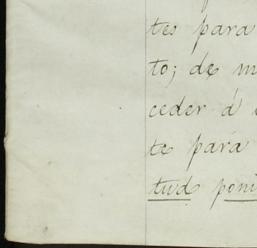 tes para
to; de
ceder á
te para
tud